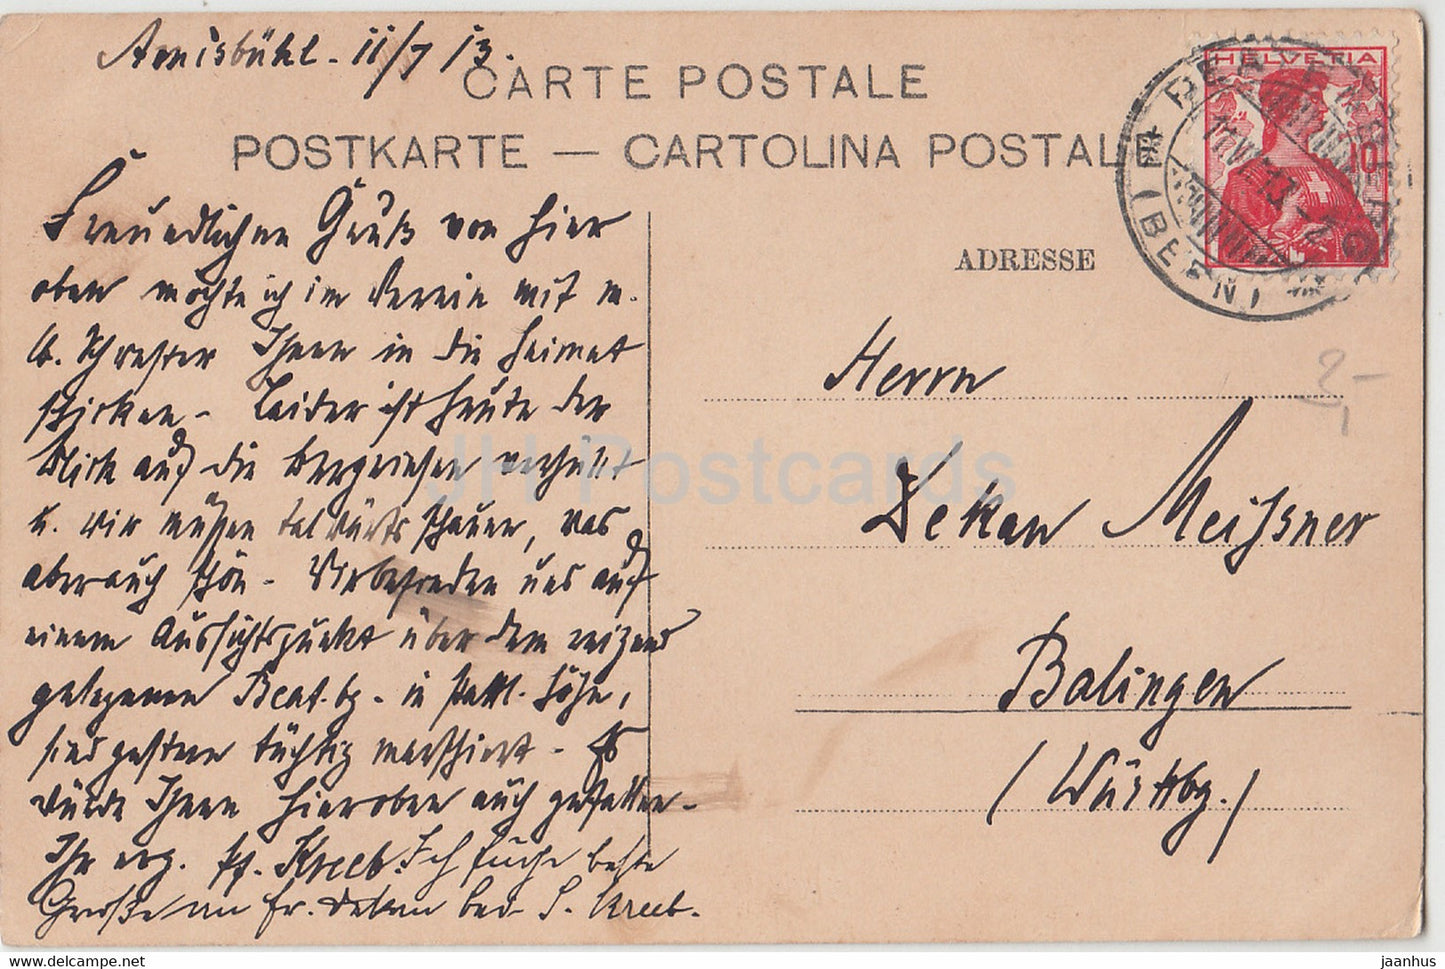 Amisbühl. 11/7 13.
CARTE POSTALE
POSTKARTE — CARTOLINA POSTALE
HELVETIA
10
BEATENBERG
(BERN)
11.VII.13.
ADRESSE
Freundlichen Gruß von hier
oben möchte ich im Verein mit m.
lb. Schwester Ihnen in die Heimat
schicken. Leider ist heute der
Blick auf die Bergriesen verhüllt
u. wir müssen talwärts schauen, was
aber auch schön. Wir befinden uns auf
einem Aussichtspunkt über dem reizend
gelegenen Beatbg. in Höhe,
sind gestern tüchtig marschiert. Es
würde Ihnen hieroben auch gefallen.
Ihr erg. Kreeb. Ich beste
Grüße an Fr. Dekan bei S. Kreeb.
Herrn
Dekan Meissner
Balingen
(Württbg.)
2,-
JH Postcards
hippostcard.com
jaanhus